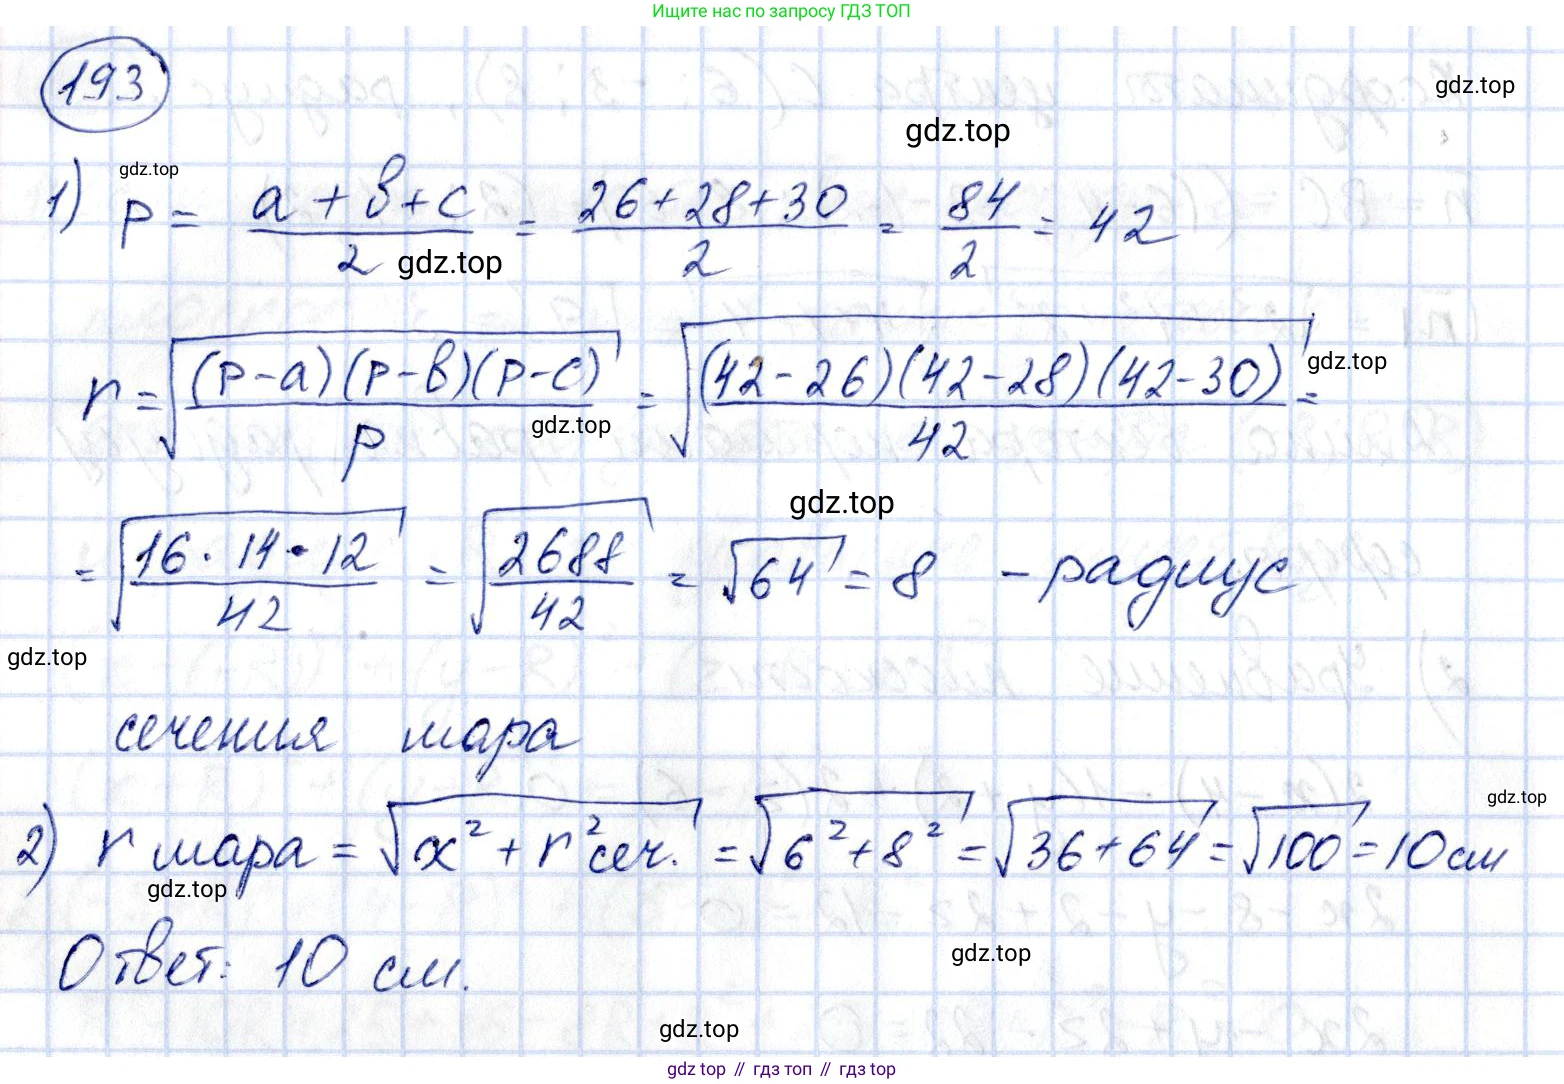 Ищите нас по запросу ГДЗ ТОП
193
gdz.top
gdz.top
gdz.top
1) p = (a+b+c)/2 = (26+28+30)/2 = 84/2 = 42
gdz.top
r = √((p-a)(p-b)(p-c)/p) = √((42-26)(42-28)(42-30)/42) =
gdz.top
gdz.top
gdz.top
= √(16·14·12/42) = √(2688/42) = √64 = 8 - радиус
gdz.top
сечения шара
gdz.top
2) r шара = √(x² + r² сеч.) = √(6²+8²) = √(36+64) = √100 = 10 см
gdz.top
Ответ: 10 см.
gdz.top
gdz.top
gdz top // гдз топ // гдз top